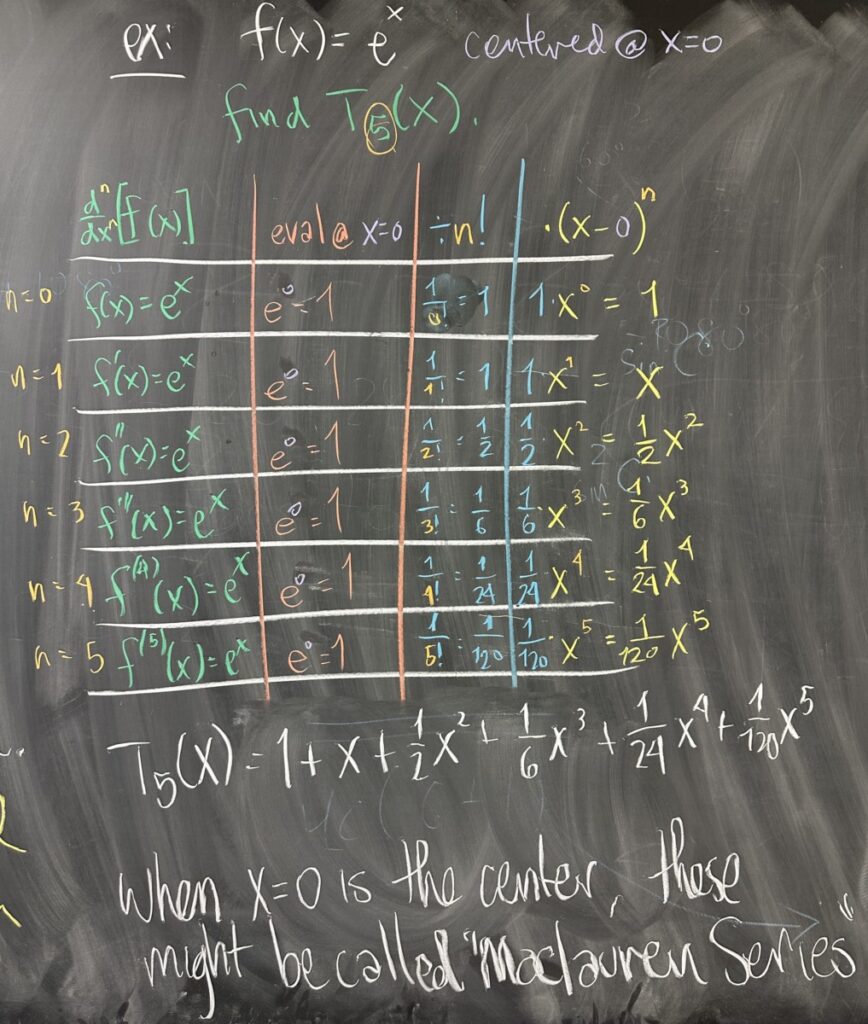 ex: f(x) = e^x centered @ x=0
find T₅(x).
d^n/dx^n [f(x)] eval @ x=0 ÷n! ·(x-0)^n
n=0 f(x)=e^x e^0=1 1/0!=1 1·x^0 = 1
n=1 f'(x)=e^x e^0=1 1/1!=1 1·x^1 = x
n=2 f''(x)=e^x e^0=1 1/2!=1/2 1/2·x^2 = 1/2 x^2
n=3 f'''(x)=e^x e^0=1 1/3!=1/6 1/6·x^3 = 1/6 x^3
n=4 f^(4)(x)=e^x e^0=1 1/4!=1/24 1/24·x^4 = 1/24 x^4
n=5 f^(5)(x)=e^x e^0=1 1/5!=1/120 1/120·x^5 = 1/120 x^5
T₅(x) = 1 + x + 1/2 x^2 + 1/6 x^3 + 1/24 x^4 + 1/120 x^5
when x=0 is the center, these
might be called "Maclauren Series"